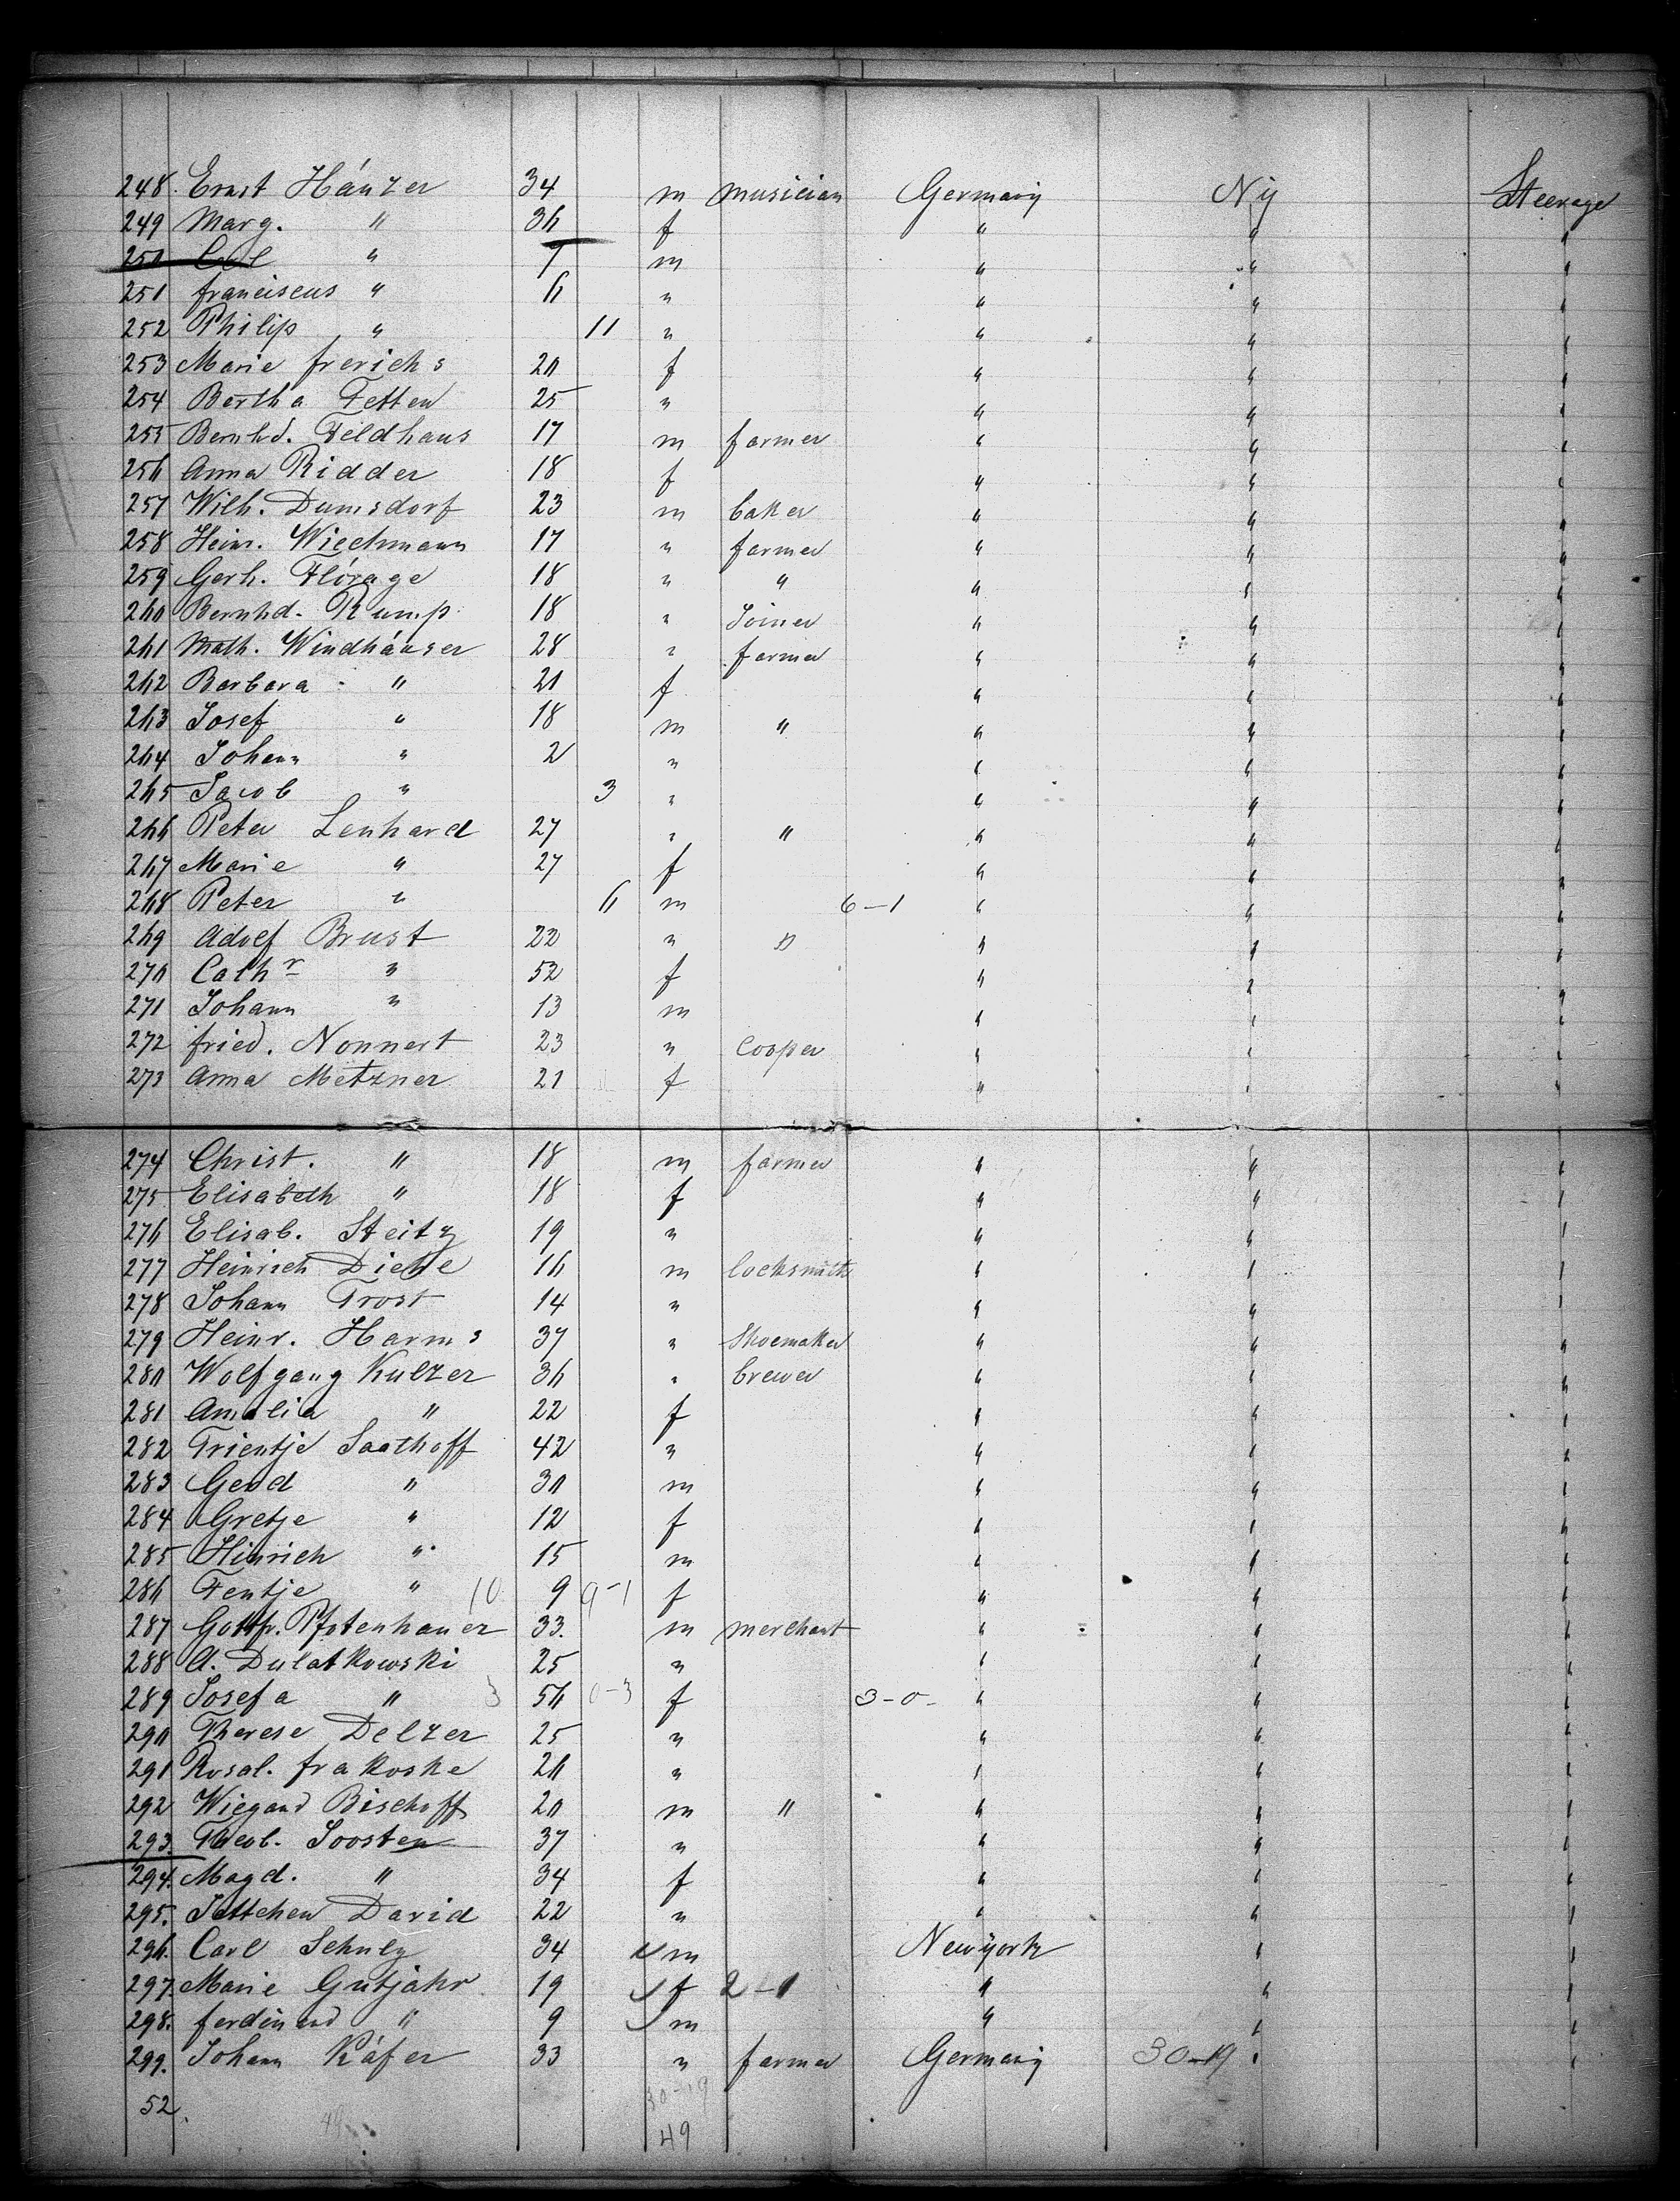 248. Ernst Hánzer 34 m musician Germany Ny Steerage
249 Marg. " 36 f " " "
250 " 7 m " " "
251 franciscus " 6 " " " "
252 Philip " 11 " " " "
253 Marie frerichs 20 f " " "
254 Bertha Fetten 25 " " " "
255 Bernhd. Feldhaus 17 m farmer " " "
256 Anna Ridder 18 f " " "
257 Wilh. Dumsdorf 23 m baker " " "
258 Heinr. Wiechmann 17 " farmer " " "
259 Gerh. 18 " " " " "
260 Bernhd. Rump 18 " Joiner " " "
261 Math. Windháuser 28 " farmer " " "
262 Barbara " 21 f " " "
263 Josef " 18 m " " " "
264 Johann " 2 " " " "
265 Jacob " 3 " " " "
266 Peter Lenhard 27 " " " " "
267 Marie " 27 f " " "
268 Peter " 6 m 6-1 " " "
269 Adolf Brust 22 " " " " "
270 Cathr " 52 f " " "
271 Johann " 13 m " " "
272 fried. Nonnert 23 " Cooper " " "
273 Anna Metzner 21 f " " "
274 Christ. " 18 m farmer " " "
275 Elisabeth " 18 f " " "
276 Elisab. Steitz 19 " " " "
277 Heinrich Diehe 16 m locksmith " " "
278 Johann Trost 14 " " " "
279 Heinr. Harms 37 " Shoemaker " " "
280 Wolfgang Kulzer 36 " brewer " " "
281 Amalia " 22 f " " "
282 Trientje Saathoff 42 " " " "
283 Gerd " 30 m " " "
284 Gretje " 12 f " " "
285 Hinrich " 15 m " " "
286 Fentje " 10 9 9-1 f " " "
287 Gottfr. Pfotenhauer 33. m merchant " " "
288 A. Dulatkowski 25 " " " "
289 Josefa " 3 56 0-3 f 3-0- " " "
290 Therese Delzer 25 " " " "
291 Rosal. frakoske 26 " " " "
292 Wiegand Bischoff 20 m " " " "
293. Theob. Joosten 37 " " " "
294. Magd. " 34 f " " "
295. Jettchen David 22 " " " "
296. Carl Schulz 34 m Newyork " "
297. Marie Gutjahr 19 f 2-1 " " "
298. ferdinand " 9 m " " "
299. Johann Káfer 33 " farmer Germany 30-19 " "
52. 30-19
49 49